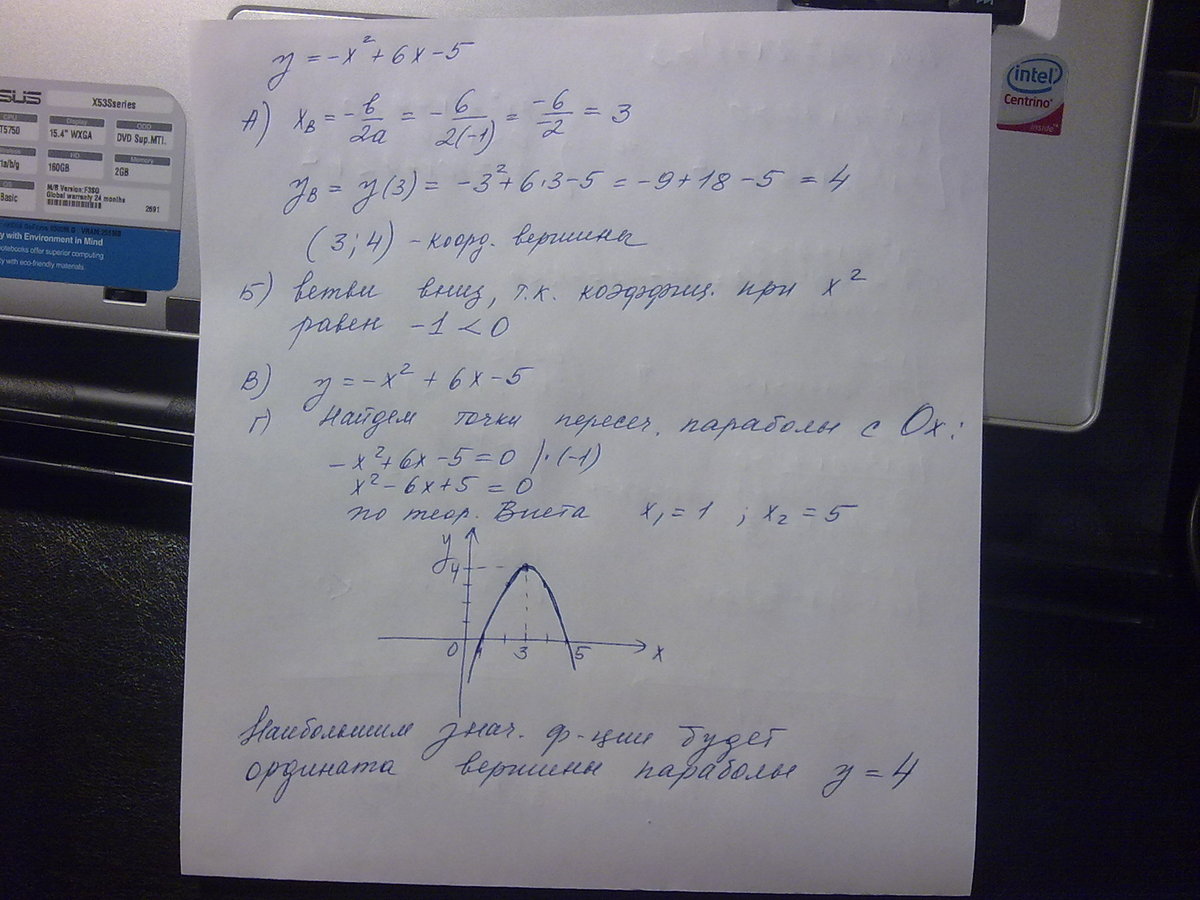 y = -x² + 6x - 5
А) xв = -в/2a = - 6/2(-1) = -6/-2 = 3
yв = y(3) = -3² + 6·3 - 5 = -9 + 18 - 5 = 4
(3; 4) - коорд. вершины
Б) ветви вниз, т.к. коэффиц. при x²
равен -1 < 0
В) y = -x² + 6x - 5
Г) Найдем точки пересеч. параболы с Ox:
-x² + 6x - 5 = 0 |·(-1)
x² - 6x + 5 = 0
по теор. Виета x₁ = 1 ; x₂ = 5
y
4
0 1 3 5 x
Наибольшим знач. ф-ции будет
ордината вершины параболы y = 4
SUS
X53Sseries
CPU
T5750
Display
15.4" WXGA
ODD
DVD Sup.MTI.
a/b/g
HD
160GB
Memory
2GB
OS
Basic
M/B Version:F3SG
Global warranty 24 months
2691
y with Environment in Mind
notebooks offer superior computing
y with eco-friendly materials.
intel
Centrino
inside